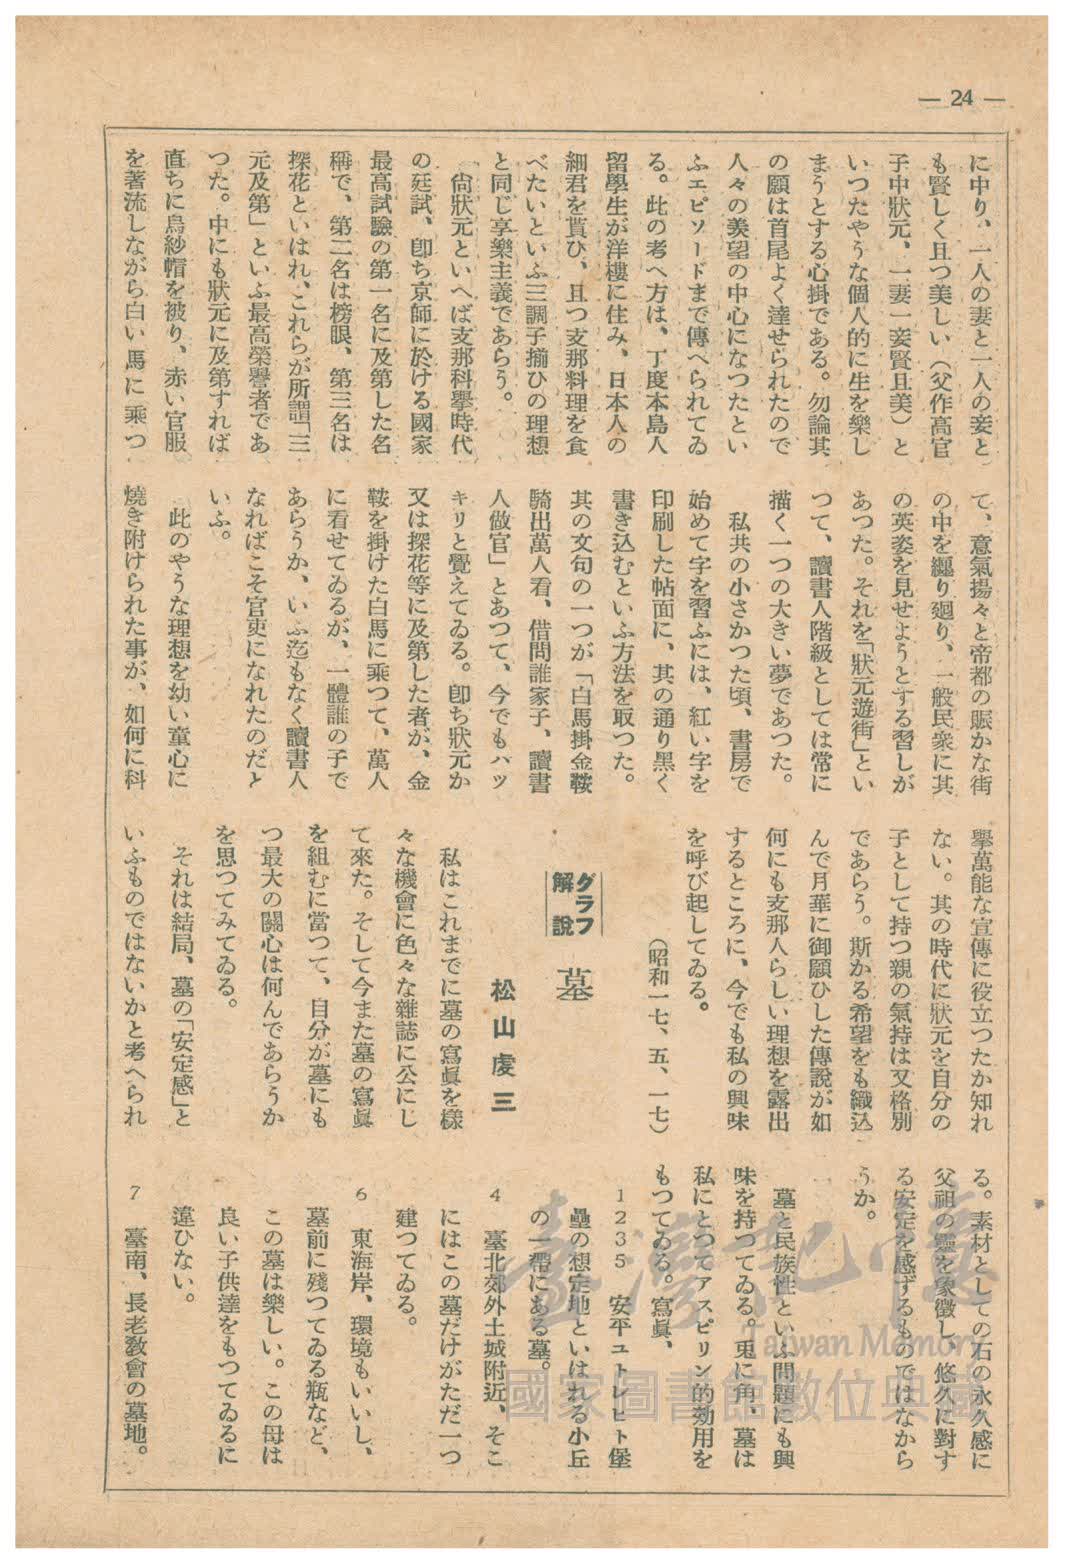 — 24 —
に中り、一人の妻と一人の妾と
も賢しく且つ美しい（父作高官
子中狀元、一妻一妾賢且美）と
いつたやうな個人的に生を樂し
まうとする心掛である。勿論其
の願は首尾よく達せられたので
人々の羨望の中心になつたとい
ふエピソードまで傳へられてゐ
る。此の考へ方は、丁度本島人
留學生が洋樓に住み、日本人の
細君を貰ひ、且つ支那料理を食
べたいといふ三調子揃ひの理想
と同じ享樂主義であらう。
尙狀元といへば支那科擧時代
の廷試、卽ち京師に於ける國家
最高試驗の第一名に及第した名
稱で、第二名は榜眼、第三名は
探花といはれ、これらが所謂「三
元及第」といふ最高榮譽者であ
つた。中にも狀元に及第すれば
直ちに烏紗帽を被り、赤い官服
を著流しながら白い馬に乘つ
て、意氣揚々と帝都の賑かな街
の中を纒り廻り、一般民衆に其
の英姿を見せようとする習しが
あつた。それを「狀元遊街」とい
つて、讀書人階級としては常に
描く一つの大きい夢であつた。
私共の小さかつた頃、書房で
始めて字を習ふには、紅い字を
印刷した帖面に、其の通り黑く
書き込むといふ方法を取つた。
其の文句の一つが「白馬掛金鞍
騎出萬人看、借問誰家子、讀書
人做官」とあつて、今でもハツ
キリと覺えてゐる。卽ち狀元か
又は探花等に及第した者が、金
鞍を掛けた白馬に乘つて、萬人
に看せてゐるが、一體誰の子で
あらうか、いふ迄もなく讀書人
なればこそ官吏になれたのだと
いふ。
此のやうな理想を幼い童心に
燒き附けられた事が、如何に科
擧萬能な宣傳に役立つたか知れ
ない。其の時代に狀元を自分の
子として持つ親の氣持は又格別
であらう。斯かる希望をも織込
んで月華に御願ひした傳說が如
何にも支那人らしい理想を露出
するところに、今でも私の興味
を呼び起してゐる。
（昭和一七、五、一七）
グラフ
解說
墓
松山虔三
私はこれまでに墓の寫眞を樣
々な機會に色々な雜誌に公にし
て來た。そして今また墓の寫眞
を組むに當つて、自分が墓にも
つ最大の關心は何んであらうか
を思つてみてゐる。
それは結局、墓の「安定感」と
いふものではないかと考へられ
る。素材としての石の永久感に
父祖の靈を象徵し、悠久に對す
る安定を感ずるものではなから
うか。
墓と民族性といふ問題にも興
味を持つてゐる。兎に角、墓は
私にとつてアスピリン的効用を
もつてゐる。寫眞、
1235 安平ユトレヒト堡
壘の想定地といはれる小丘
の一帶にある墓。
4 臺北郊外土城附近、そこ
にはこの墓だけがただ一つ
建つてゐる。
6 東海岸、環境もいいし、
墓前に殘つてゐる瓶など、
この墓は樂しい。この母は
良い子供達をもつてゐるに
違ひない。
7 臺南、長老敎會の墓地。
臺灣記憶
Taiwan Memory
國家圖書館數位典藏